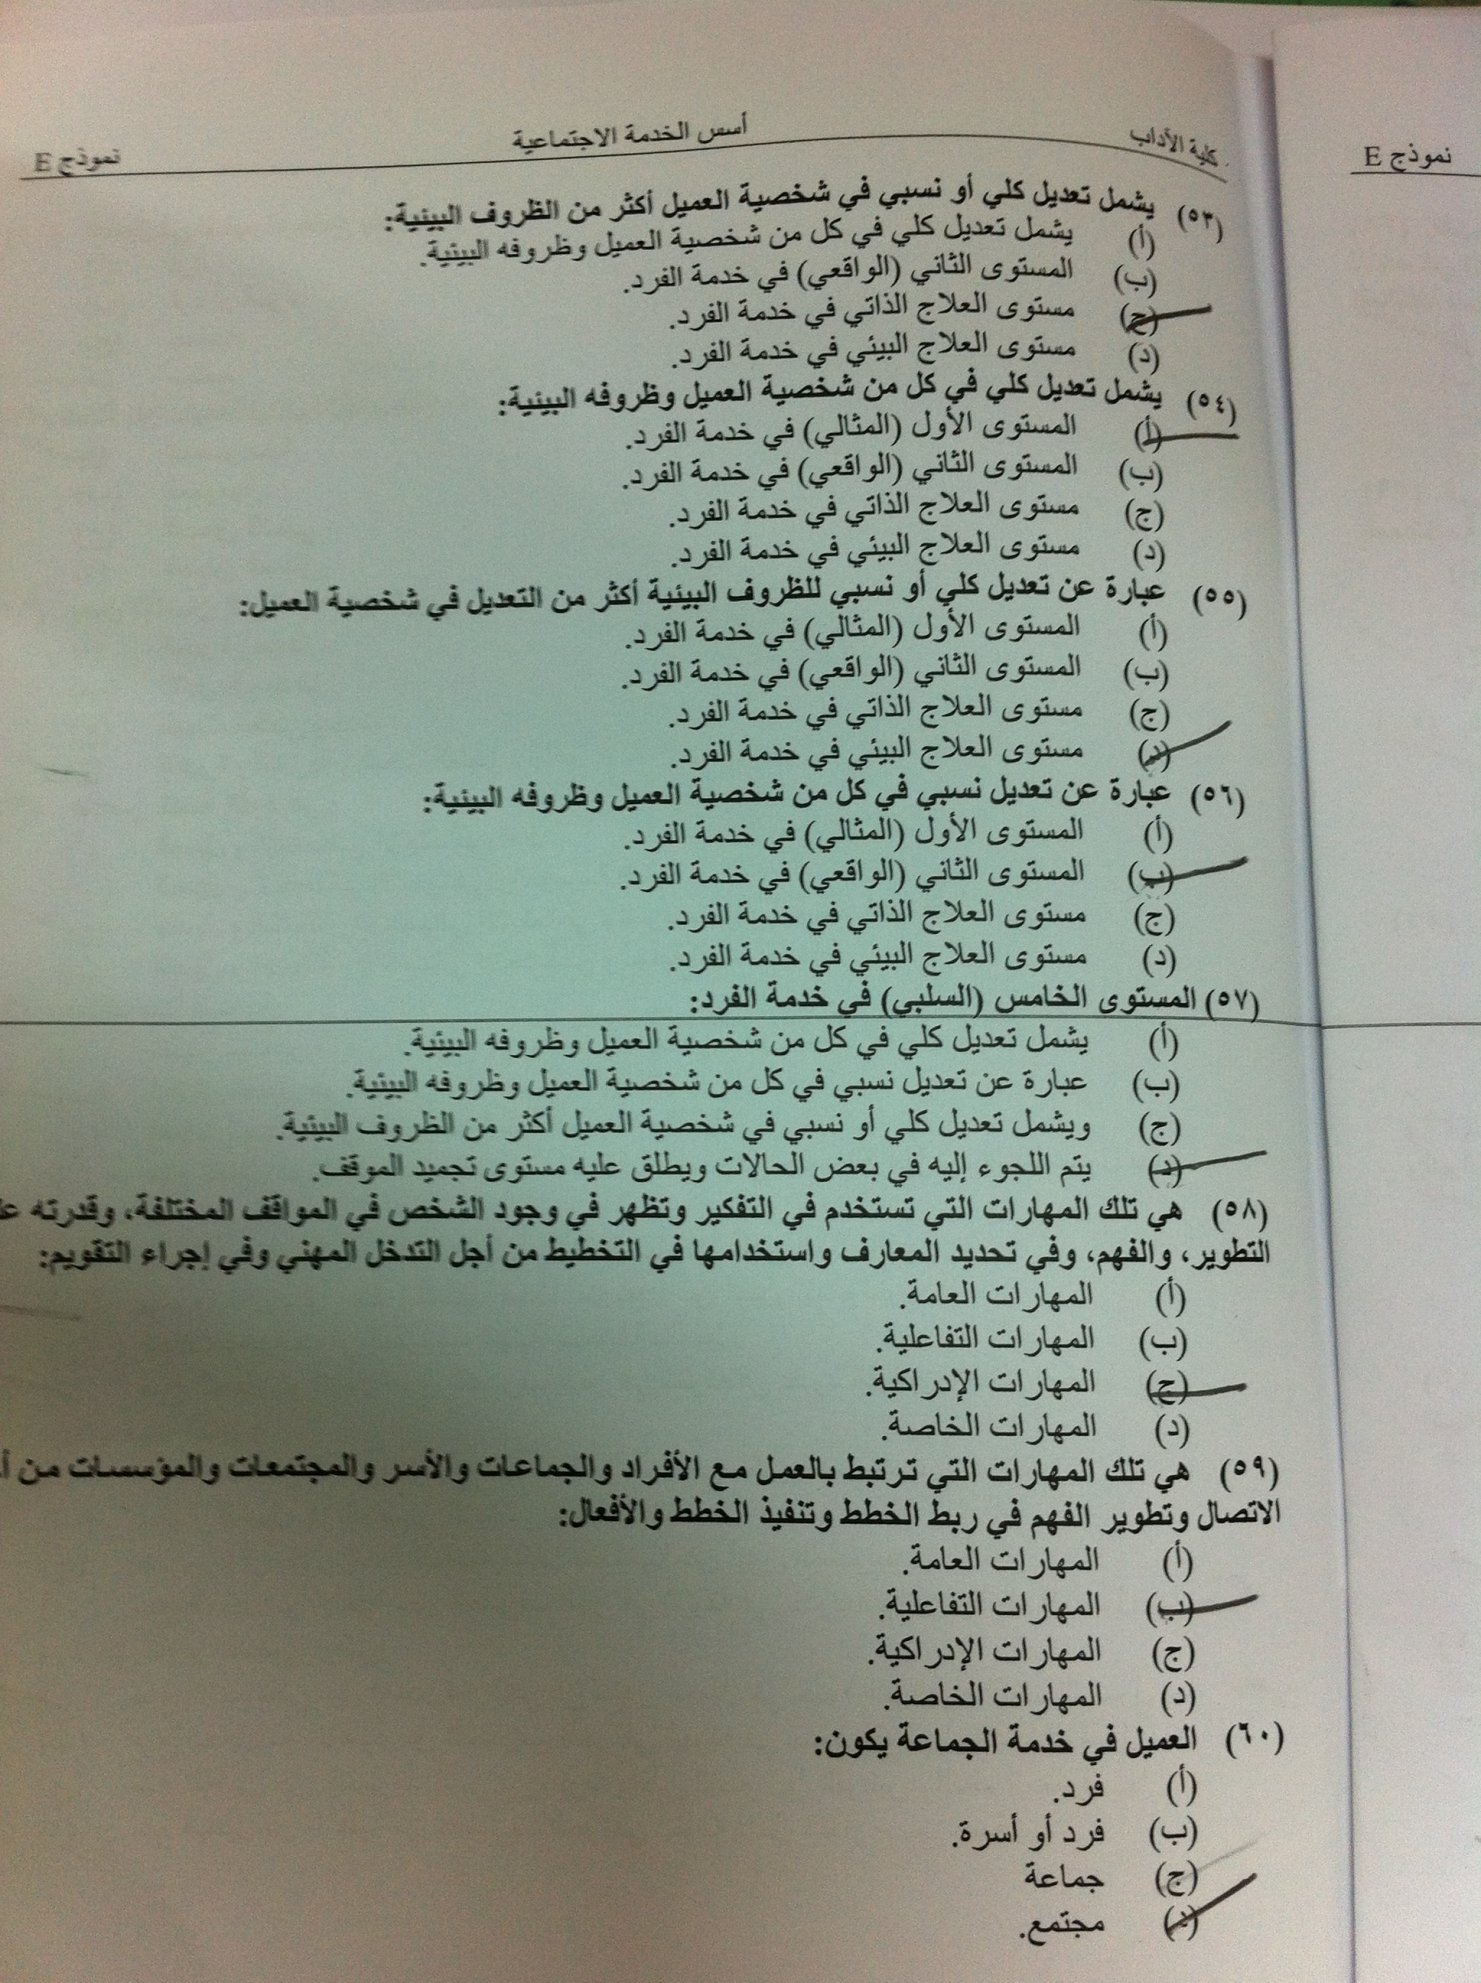 كلية الآداب أسس الخدمة الاجتماعية نموذج E
نموذج E
(٥٣) يشمل تعديل كلي أو نسبي في شخصية العميل أكثر من الظروف البيئية:
(أ) يشمل تعديل كلي في كل من شخصية العميل وظروفه البيئية.
(ب) المستوى الثاني (الواقعي) في خدمة الفرد.
(ج) مستوى العلاج الذاتي في خدمة الفرد.
(د) مستوى العلاج البيئي في خدمة الفرد.
(٥٤) يشمل تعديل كلي في كل من شخصية العميل وظروفه البيئية:
(أ) المستوى الأول (المثالي) في خدمة الفرد.
(ب) المستوى الثاني (الواقعي) في خدمة الفرد.
(ج) مستوى العلاج الذاتي في خدمة الفرد.
(د) مستوى العلاج البيئي في خدمة الفرد.
(٥٥) عبارة عن تعديل كلي أو نسبي للظروف البيئية أكثر من التعديل في شخصية العميل:
(أ) المستوى الأول (المثالي) في خدمة الفرد.
(ب) المستوى الثاني (الواقعي) في خدمة الفرد.
(ج) مستوى العلاج الذاتي في خدمة الفرد.
(د) مستوى العلاج البيئي في خدمة الفرد.
(٥٦) عبارة عن تعديل نسبي في كل من شخصية العميل وظروفه البيئية:
(أ) المستوى الأول (المثالي) في خدمة الفرد.
(ب) المستوى الثاني (الواقعي) في خدمة الفرد.
(ج) مستوى العلاج الذاتي في خدمة الفرد.
(د) مستوى العلاج البيئي في خدمة الفرد.
(٥٧) المستوى الخامس (السلبي) في خدمة الفرد:
(أ) يشمل تعديل كلي في كل من شخصية العميل وظروفه البيئية.
(ب) عبارة عن تعديل نسبي في كل من شخصية العميل وظروفه البيئية.
(ج) ويشمل تعديل كلي أو نسبي في شخصية العميل أكثر من الظروف البيئية.
(د) يتم اللجوء إليه في بعض الحالات ويطلق عليه مستوى تجميد الموقف.
(٥٨) هي تلك المهارات التي تستخدم في التفكير وتظهر في وجود الشخص في المواقف المختلفة، وقدرته
التطوير، والفهم، وفي تحديد المعارف واستخدامها في التخطيط من أجل التدخل المهني وفي إجراء التقويم:
(أ) المهارات العامة.
(ب) المهارات التفاعلية.
(ج) المهارات الإدراكية.
(د) المهارات الخاصة.
(٥٩) هي تلك المهارات التي ترتبط بالعمل مع الأفراد والجماعات والأسر والمجتمعات والمؤسسات من
الاتصال وتطوير الفهم في ربط الخطط وتنفيذ الخطط والأفعال:
(أ) المهارات العامة.
(ب) المهارات التفاعلية.
(ج) المهارات الإدراكية.
(د) المهارات الخاصة.
(٦٠) العميل في خدمة الجماعة يكون:
(أ) فرد.
(ب) فرد أو أسرة.
(ج) جماعة
(د) مجتمع.